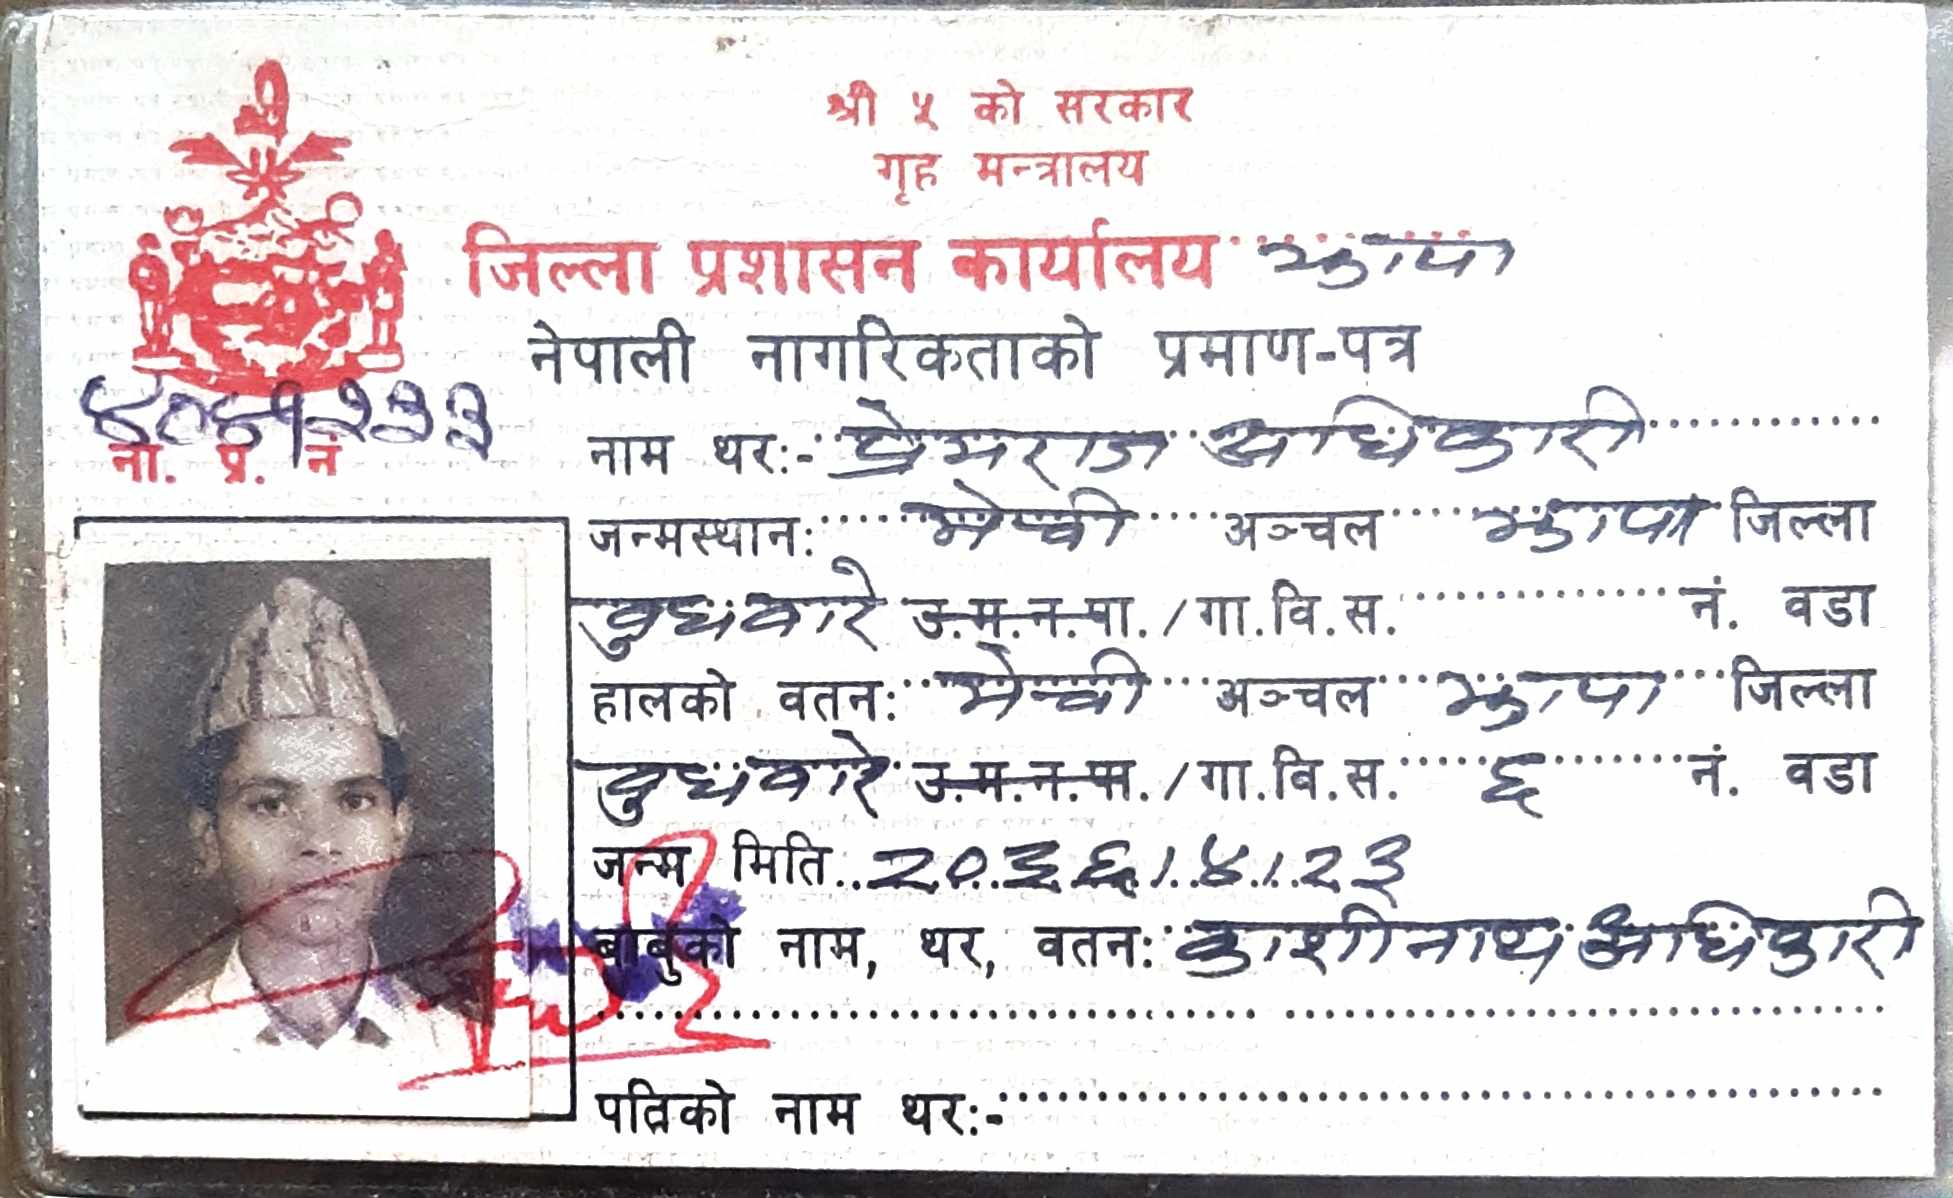 श्री ५ को सरकार
गृह मन्त्रालय
जिल्ला प्रशासन कार्यालय झापा
नेपाली नागरिकताको प्रमाण-पत्र
ना. प्र. नं
नाम थर:- प्रेमराज अधिकारी
जन्मस्थान: मेची अञ्चल झापा जिल्ला
बुधबारे उ.म.न.पा./गा.वि.स. नं. वडा
हालको वतन: मेची अञ्चल झापा जिल्ला
बुधबारे उ.म.न.पा./गा.वि.स. ६ नं. वडा
जन्म मिति २०३६।४।२३
बाबुको नाम, थर, वतन: काशीनाथ अधिकारी
पत्निको नाम थर:-